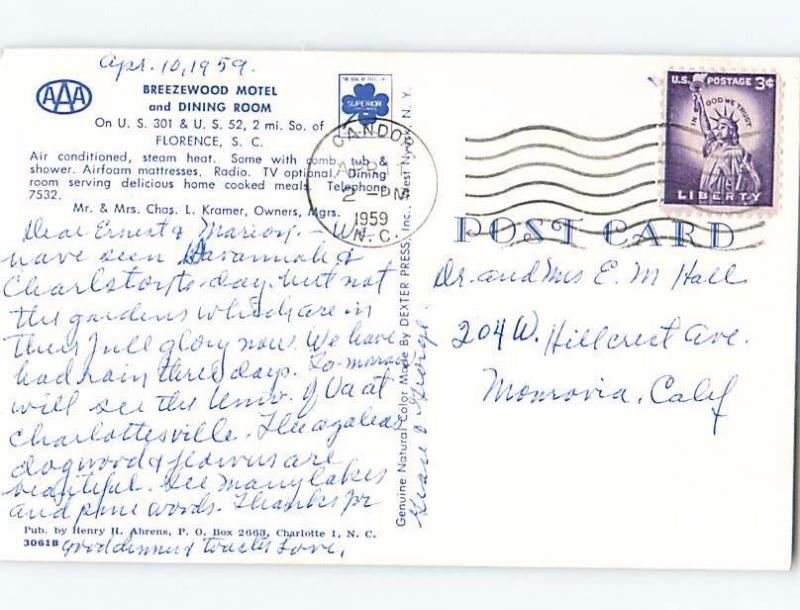 Apr. 10, 1959.
AAA
BREEZEWOOD MOTEL
and DINING ROOM
On U. S. 301 & U. S. 52, 2 mi. So. of
FLORENCE, S. C.
Air conditioned, steam heat. Some with comb. tub &
shower. Airfoam mattresses. Radio. TV optional. Dining
room serving delicious home cooked meals. Telephone
7532.
Mr. & Mrs. Chas. L. Kramer, Owners, Mgrs.
SUPERIOR
CANDOR
APR
2 - PM
1959
N. C.
U.S. POSTAGE 3¢
IN GOD WE TRUST
LIBERTY
POST CARD
Dear Ernest & Marion. - We
have seen Savannah &
Charlston to-day. but not
the gardens which are in
their full glory now. We have
had rain three days. To-morrow
will see the Univ. of Va at
Charlottesville. The azaleas
dogwood & flowers are
beautiful. See many lakes
and pine woods. Thanks for
good dinner & Love,
Grace & George.
Pub. by Henry H. Ahrens, P. O. Box 2668, Charlotte 1, N. C.
3061B
Genuine Natural Color Made By DEXTER PRESS, Inc., West Nyack, N. Y.
Dr. and Mrs E. M Hall
204 W. Hillcrest Ave.
Monrovia, Calif